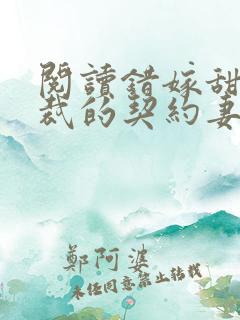 閱讀錯嫁甜
裁的契約妻
鄭阿婆
未經同意禁止轉載